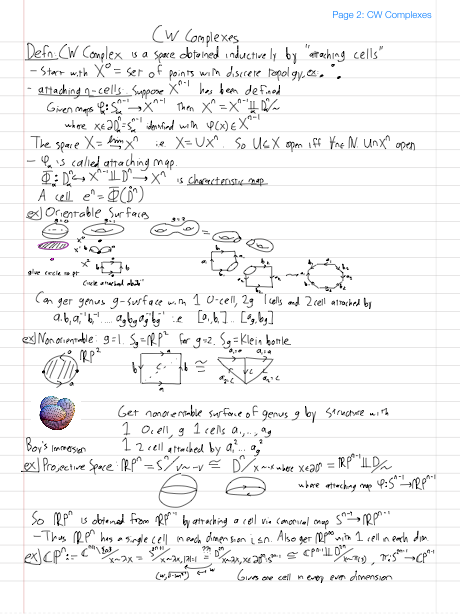 Page 2: CW Complexes
CW Complexes
Defn: CW Complex is a space obtained inductively by "attaching cells"
- Start with X⁰ = set of points with discrete topology, ex:
- attaching n-cells: Suppose Xⁿ⁻¹ has been defined
Given maps φ_α: S_αⁿ⁻¹ → Xⁿ⁻¹ Then Xⁿ = Xⁿ⁻¹ ⨿ D_αⁿ/~
where x∈∂D_αⁿ = S_αⁿ⁻¹ identified with φ(x) ∈ Xⁿ⁻¹
The space X = lim Xⁿ i.e. X = ∪Xⁿ. So U⊆X open iff ∀n∈ℕ U∩Xⁿ open
- φ_α is called attaching map.
Φ_α: D_αⁿ ↪ Xⁿ⁻¹ ⨿ Dⁿ → Xⁿ is characteristic map
A cell eⁿ = Φ(D̊ⁿ)
ex) Orientable Surfaces
g=0 g=1 g=2
X⁰
X¹
X²
give circle to pt
circle attached about
Can get genus g-surface with 1 0-cell, 2g 1 cells and 2 cell attached by
a₁b₁a₁⁻¹b₁⁻¹ .... a_g b_g a_g⁻¹ b_g⁻¹ i.e [a₁,b₁] ... [a_g,b_g]
ex) Nonorientable: g=1. S_g = ℝP² for g=2, S_g = Klein bottle
ℝP²
Get nonorientable surface of genus g by structure with
1 0cell, g 1 cells a₁,..., a_g
Boy's Immersion 1 2 cell attached by a₁² ... a_g²
ex) Projective Space: ℝPⁿ = Sⁿ/v~-v ≅ Dⁿ/x~-x where x∈∂Dⁿ = ℝPⁿ⁻¹ ⨿ Dⁿ/~
where attaching map φ: Sⁿ⁻¹ → ℝPⁿ⁻¹
So ℝPⁿ is obtained from ℝPⁿ⁻¹ by attaching a cell via canonical map Sⁿ⁻¹ → ℝPⁿ⁻¹
- Thus ℝPⁿ has a single cell in each dimension i≤n. Also get ℝP^∞ with 1 cell in each dim.
ex) ℂPⁿ :=
Gives one cell in every even dimension